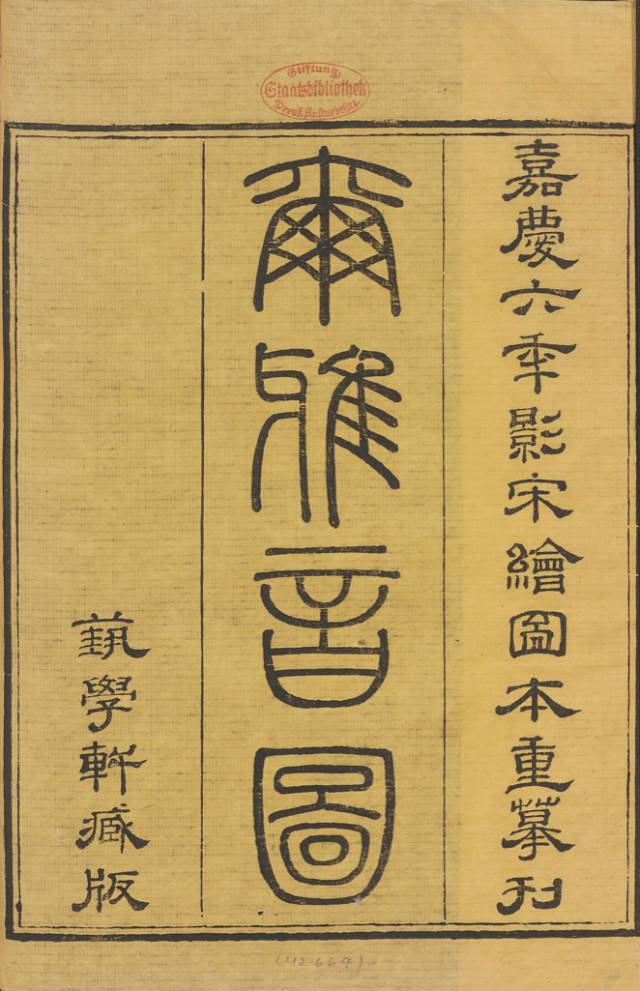 Stiftung
Staatsbibliothek
Preuß. Kulturbesitz
嘉慶六年影宋繪圖本重摹刊
爾雅音圖
藝學軒藏版
(42.664)